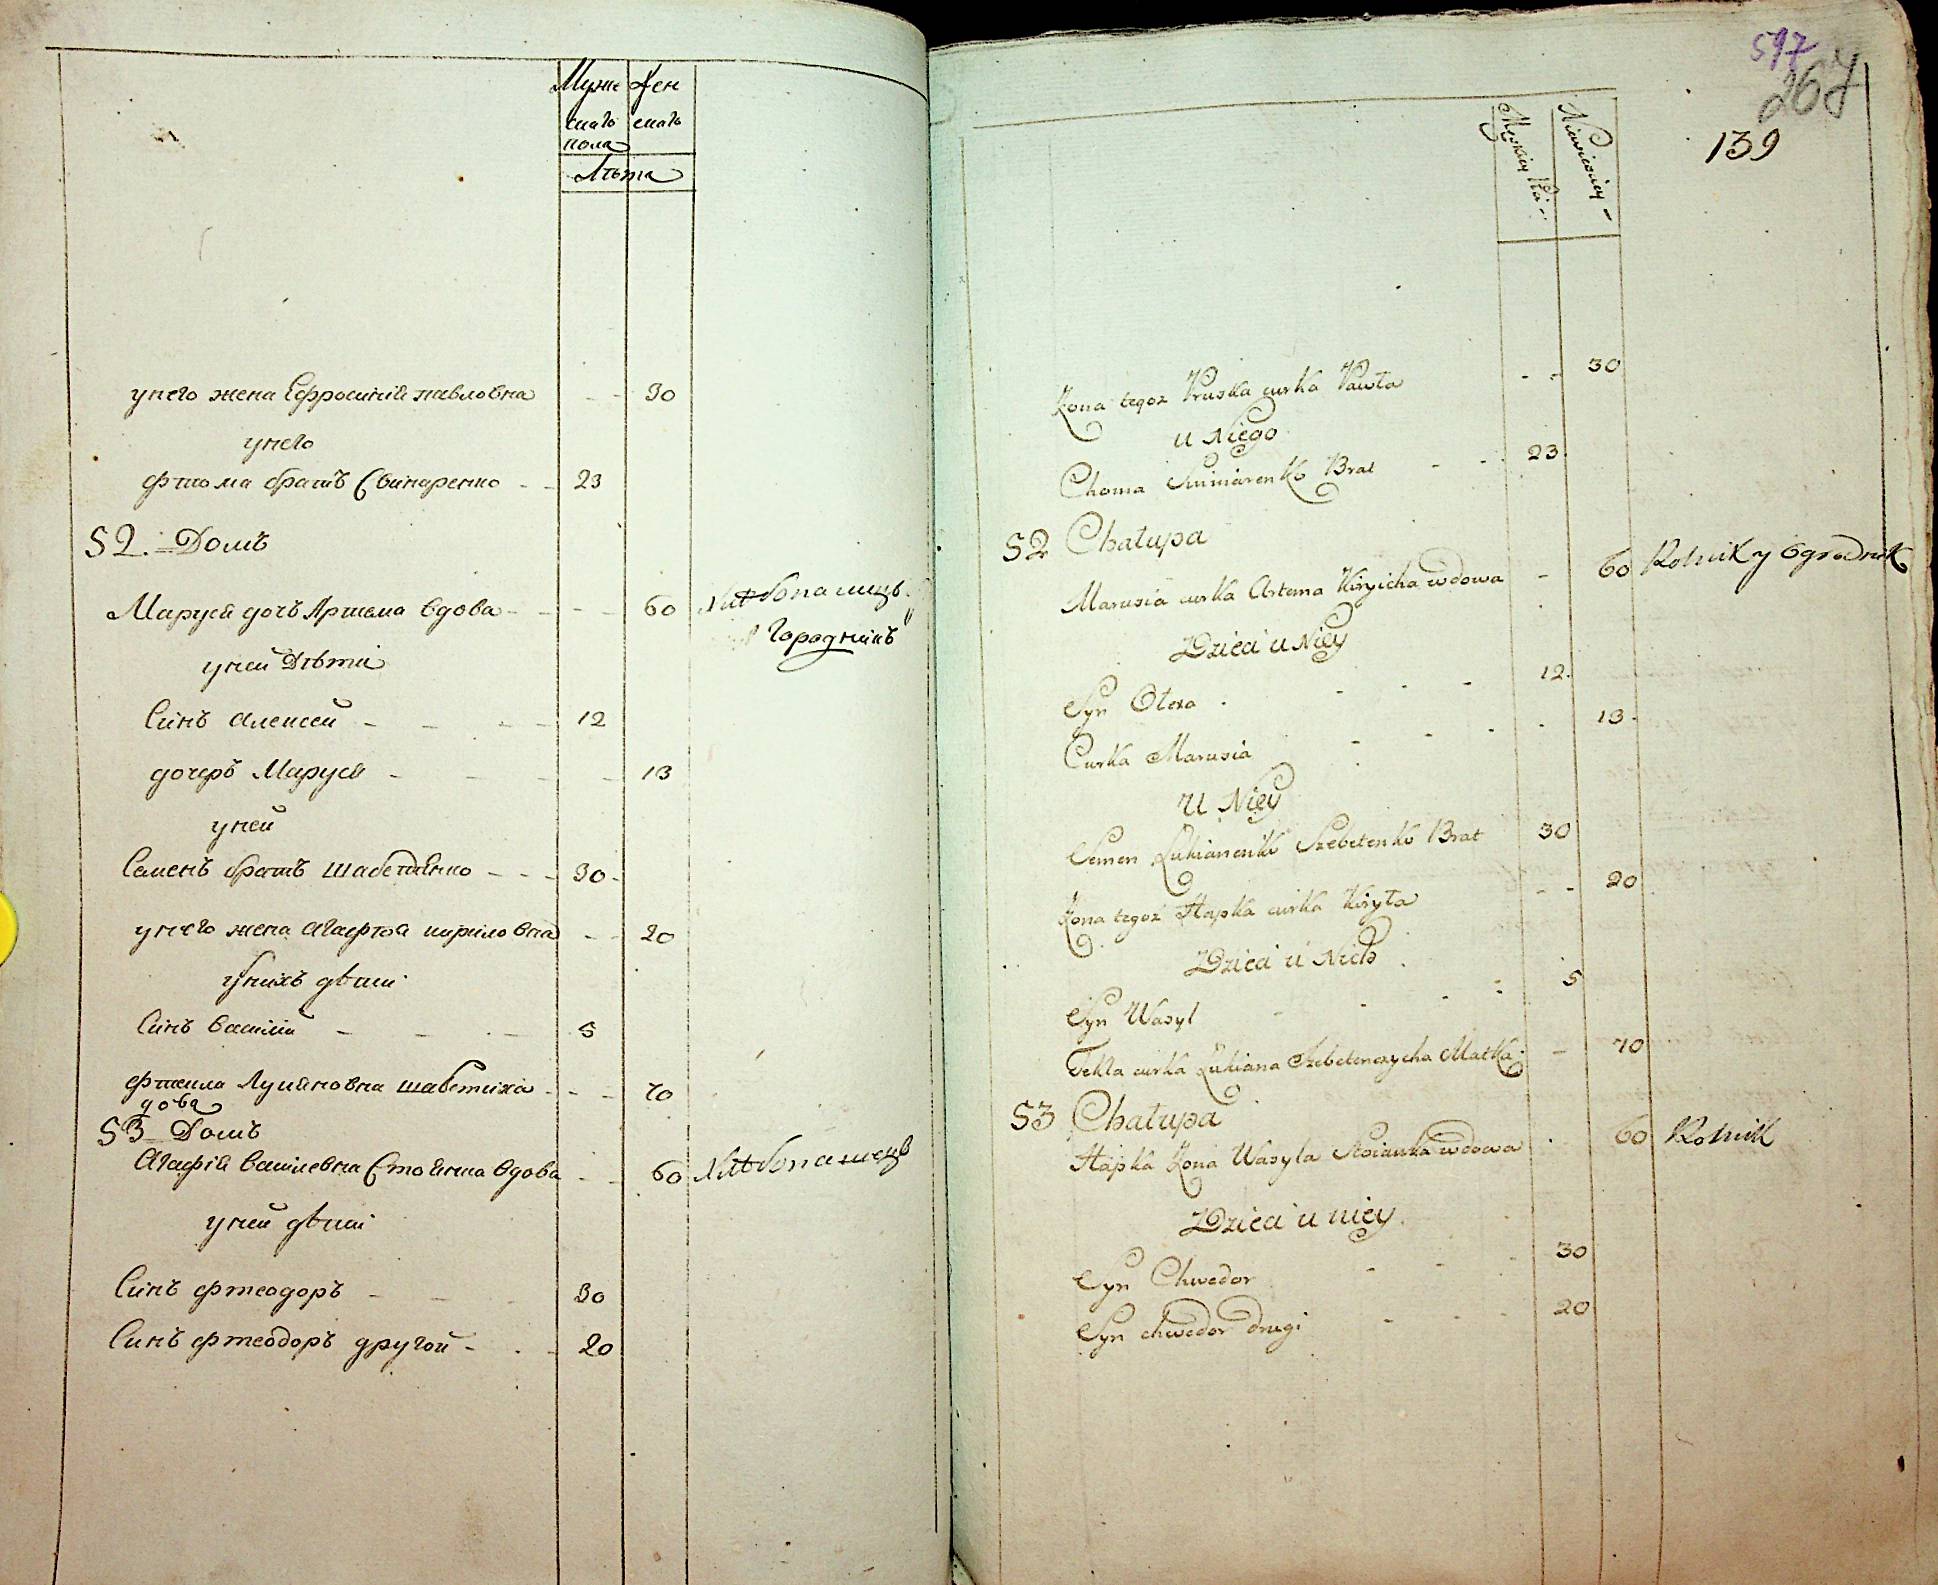 Муже Жен
скаго скаго
пола
Лѣта
у него жена Ефросинiя павловна - - 30
у него
фтома братъ Свинаренко - - 23
52. Домъ
Маруся дочъ Артема вдова - - - 60 Хлѣбопашецъ
и Городникъ
у ней Дѣти
Синъ алексей - - - - 12
дочеръ Маруся - - - - - 13
у ней
Семенъ братъ шабетенко - - - 30
у него жена агафия кирiловна - - 20
у нихъ дѣти
Синъ василiй - - - - 5
фтекла Лукiяновна шабетиха - - - 70
вдова
53 Домъ
Агафiя василевна Стоянка вдова - - 60 Хлѣбопашецъ
у ней дѣти
Синъ фтеодоръ - - - 30
Синъ фтеодоръ другой - - - 20
597
267
139
Męskiey Niewieściey -
Żona tegoż Pruska curka Pawła - - 30
u Niego
Choma Swinarenko Brat - - 23
52 Chałupa
Marusia curka Artema Kiryicha wdowa - 60 Rolnik y Ogrodnik
Dzieci u Niey
Syn Olexa - - - 12.
Curka Marusia - - - - 13
U Niey
Semen Łukianenko Szebetenko Brat 30
Żona tegoż Hapka curka Kiryła - - 20
Dzieci u Nich
Syn Wasyl - - - 5
Tekla curka Łukiana Szebetenczycha Matka - 70
53 Chałupa
Hapka Żona Wasyla Stoianka wdowa 60 Rolnik
Dzieci u niey
Syn Chwedor - - - 30
Syn chwedor drugi - - - 20